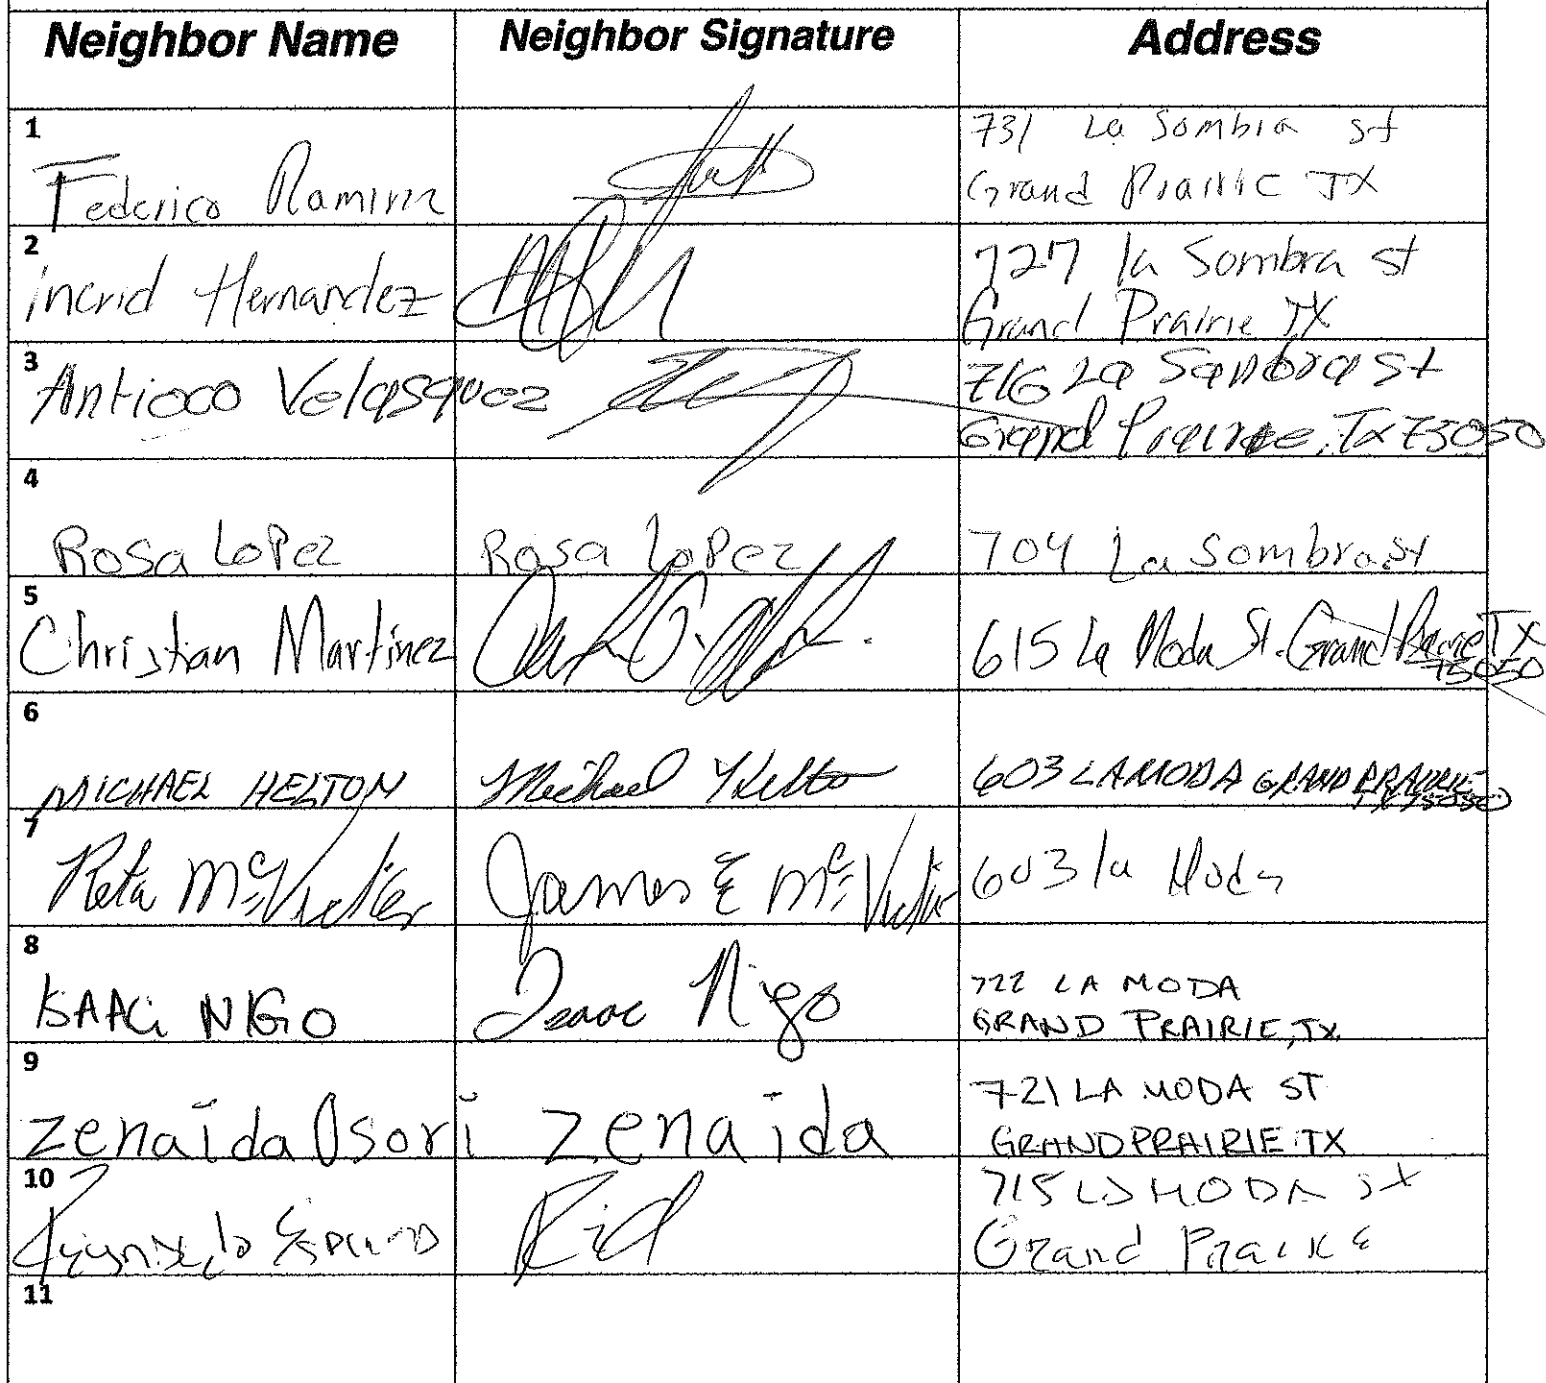 Neighbor Name Neighbor Signature Address
1
Federico Ramirez
731 La Sombra st
Grand Prairie TX
2
incrid Hernandez
727 la Sombra st
Grand Prairie TX
3
Antioco Velasquez
716 La Sanbra st
Grand Prairie, Tx 75050
4
Rosa Lopez Rosa Lopez 704 La Sombra st
5
Christian Martinez 615 La Moda St. Grand Prairie TX
75050
6
MICHAEL HELTON Michael Helton 603 LA MODA GRAND PRAIRIE
TX 75050
7
Reta McVicker James E McVicker 603 la Moda
8
ISAAC NIGO Isaac Nigo
722 LA MODA
GRAND PRAIRIE, TX
9
zenaida Osori zenaida
721 LA MODA ST
GRAND PRAIRIE TX
10
715 LA MODA st
Grand Prairie
11